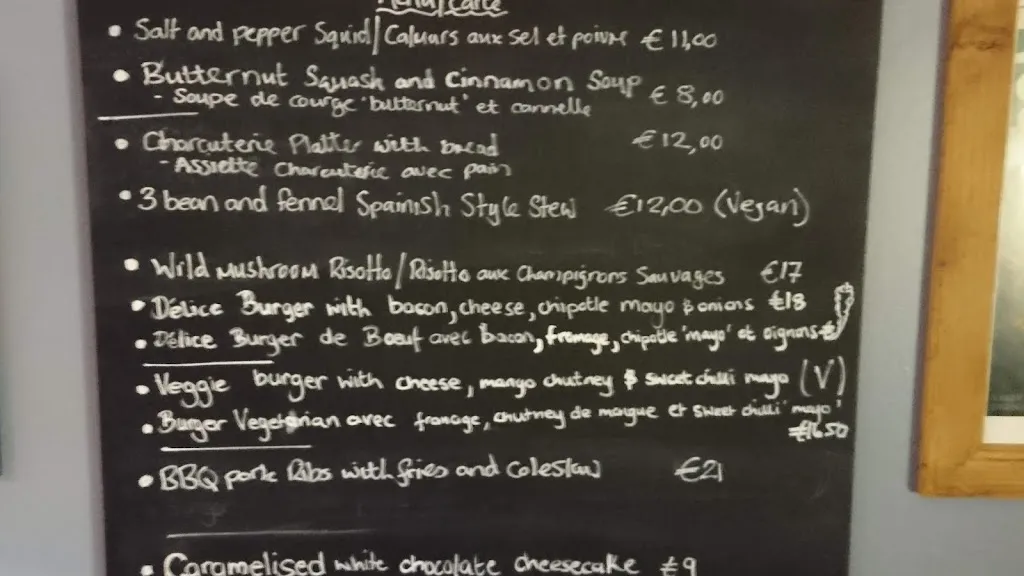 Menu/Carte
• Salt and pepper Squid/Calmars aux sel et poivre €11,00
• Butternut Squash and Cinnamon Soup
- Soupe de courge 'butternut' et cannelle €8,00
• Charcuterie Platter with bread €12,00
- Assiette Charcuterie avec pain
• 3 bean and fennel Spainish Style Stew €12,00 (Vegan)
• Wild Mushroom Risotto/Risotto aux Champignons Sauvages €17
• Délice Burger with bacon, cheese, chipotle mayo & onions €18
• Délice Burger de Boeuf avec bacon, fromage, chipotle 'mayo' et oignons
• Veggie burger with cheese, mango chutney & sweet chilli mayo (V)
• Burger Vegetarian avec fromage, chutney de mangue et sweet chilli 'mayo'
€16.50
• BBQ pork Ribs with fries and coleslaw €21
• Caramelised white chocolate cheesecake €9